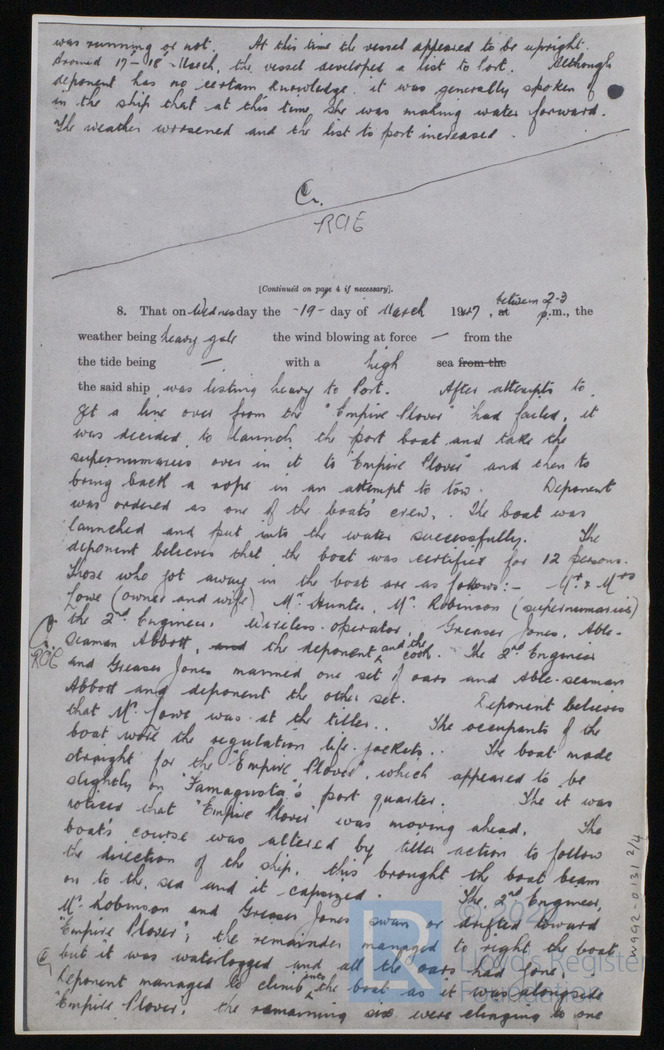 was running or not. At this time the vessel appeared to be upright.
Around 17-18 March, the vessel developed a list to Port. Although
deponent has no certain knowledge, it was generally spoken of
in the ship that at this time, she was making water forward.
The weather worsened and the list to port increased.
RGE
[Continued on page 4 if necessary].
between 2-3
8. That on Wednesday the -19- day of March 1947, at p.m., the
weather being heavy gale the wind blowing at force — from the
the tide being — with a high sea from the
the said ship was listing heavy to Port. After attempts to
get a line over from the "Empire Plover" had failed, it
was decided to launch the port boat and take the
supernumaries over in it to "Empire Plover" and then to
bring back a rope in an attempt to tow. Deponent
was ordered as one of the boat's crew. The boat was
launched and put into the water successfully. The
deponent believes that the boat was certified for 12 persons.
Those who got away in the boat are as follows:- Mr & Mrs
Lowe (owner and wife) Mr. Hunter, Mr. Robinson (supernumaries)
the 2nd Engineer, Wireless-operator, Greaser Jones, Able-
seaman Abbott, and the deponent and the cook. The 2nd Engineer
RGE
and Greaser Jones manned one set of oars and Able-seaman
Abbott and deponent the other set. Deponent believes
that Mr. Lowe was at the tiller. The occupants of the
boat wore the regulation life-jackets. The boat made
straight for the "Empire Plover", which appeared to be
slightly on "Famagusta's" port quarter. The it was
noticed that "Empire Plover" was moving ahead. The
boat's course was altered by tiller action to follow
the direction of the ship, this brought the boat beam
on to the sea and it capsized. The 2nd Engineer,
Mr. Robinson and Greaser Jones swam or drifted toward
"Empire Plover"; the remainder managed to right the boat
but it was waterlogged and all the oars had gone.
Deponent managed to climb the boat as it was alongside
"Empire Plover", the remaining six were clinging to one
W992-0131 2/4
© 2020
Lloyd's Register
Foundation